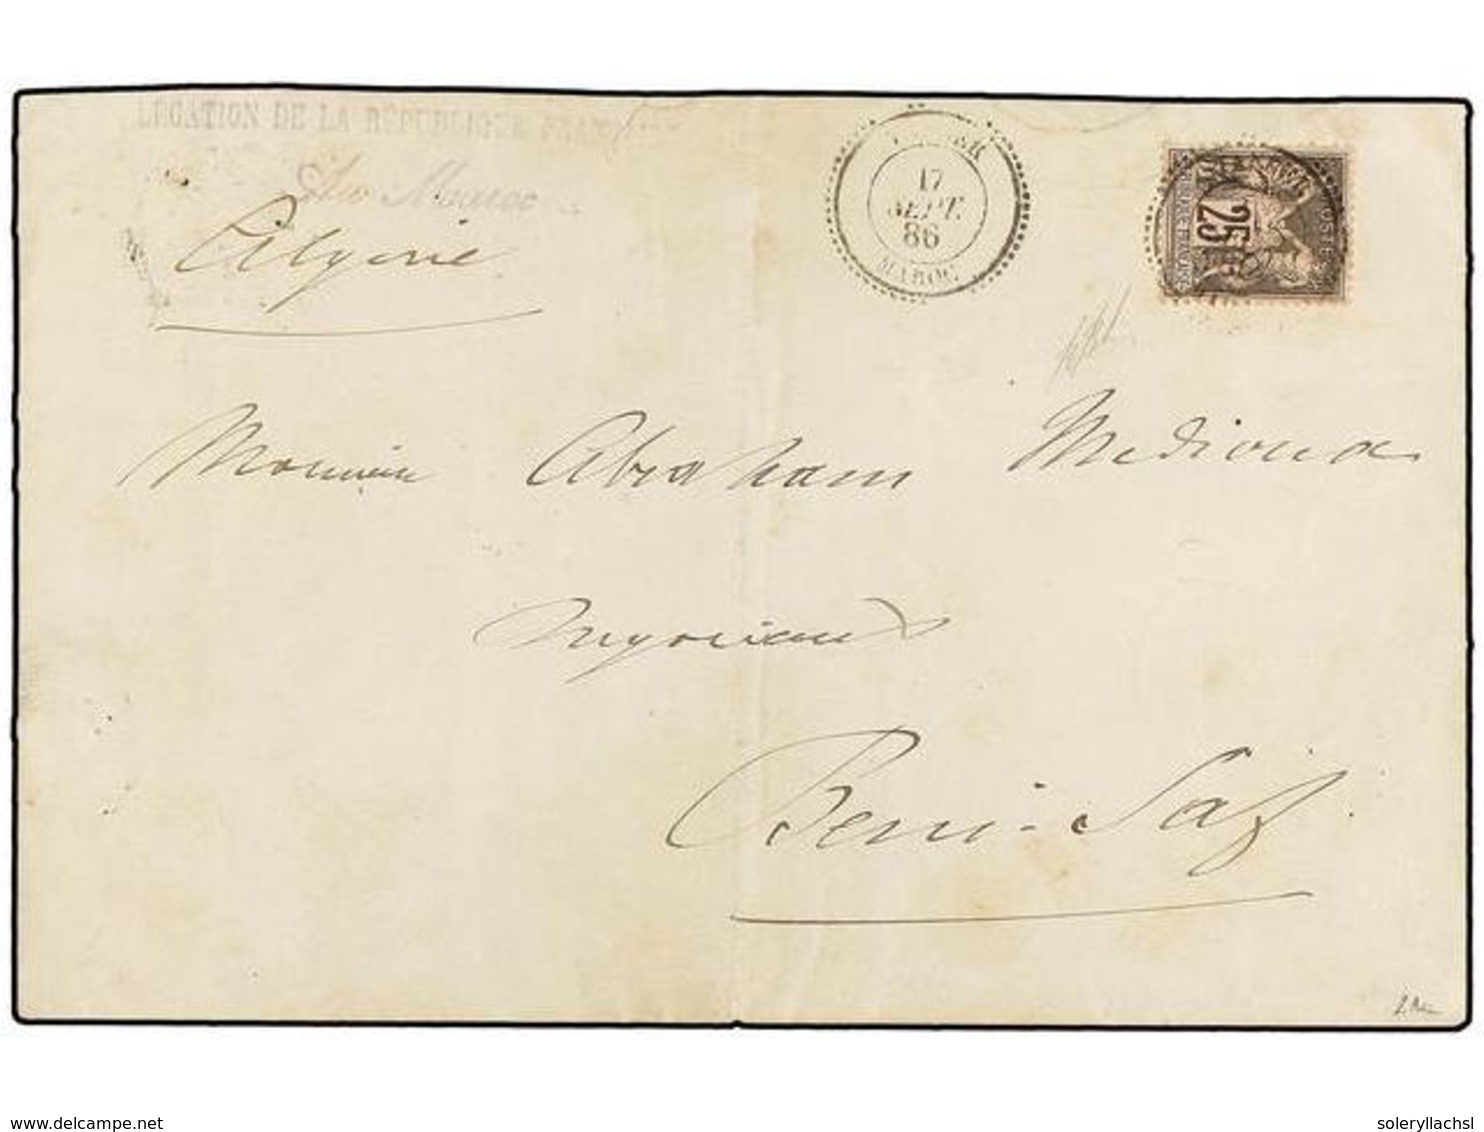 LEGATION DE LA RÉPUBLIQUE FRANÇ
Au Maroc
Algérie
TANGER
17
SEPT.
86
MAROC
25
POSTES
Monsieur Abraham Mediouna
Negociant
Beni-Saf
delcampe.net
soleryllachsl